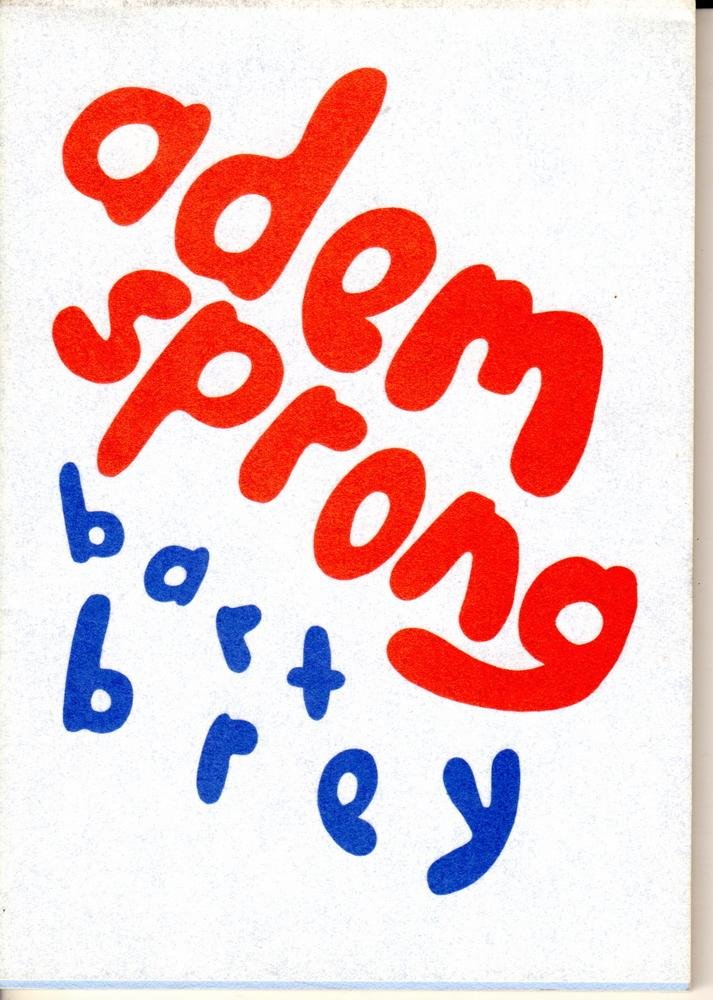 adem
sprong
bart
brey